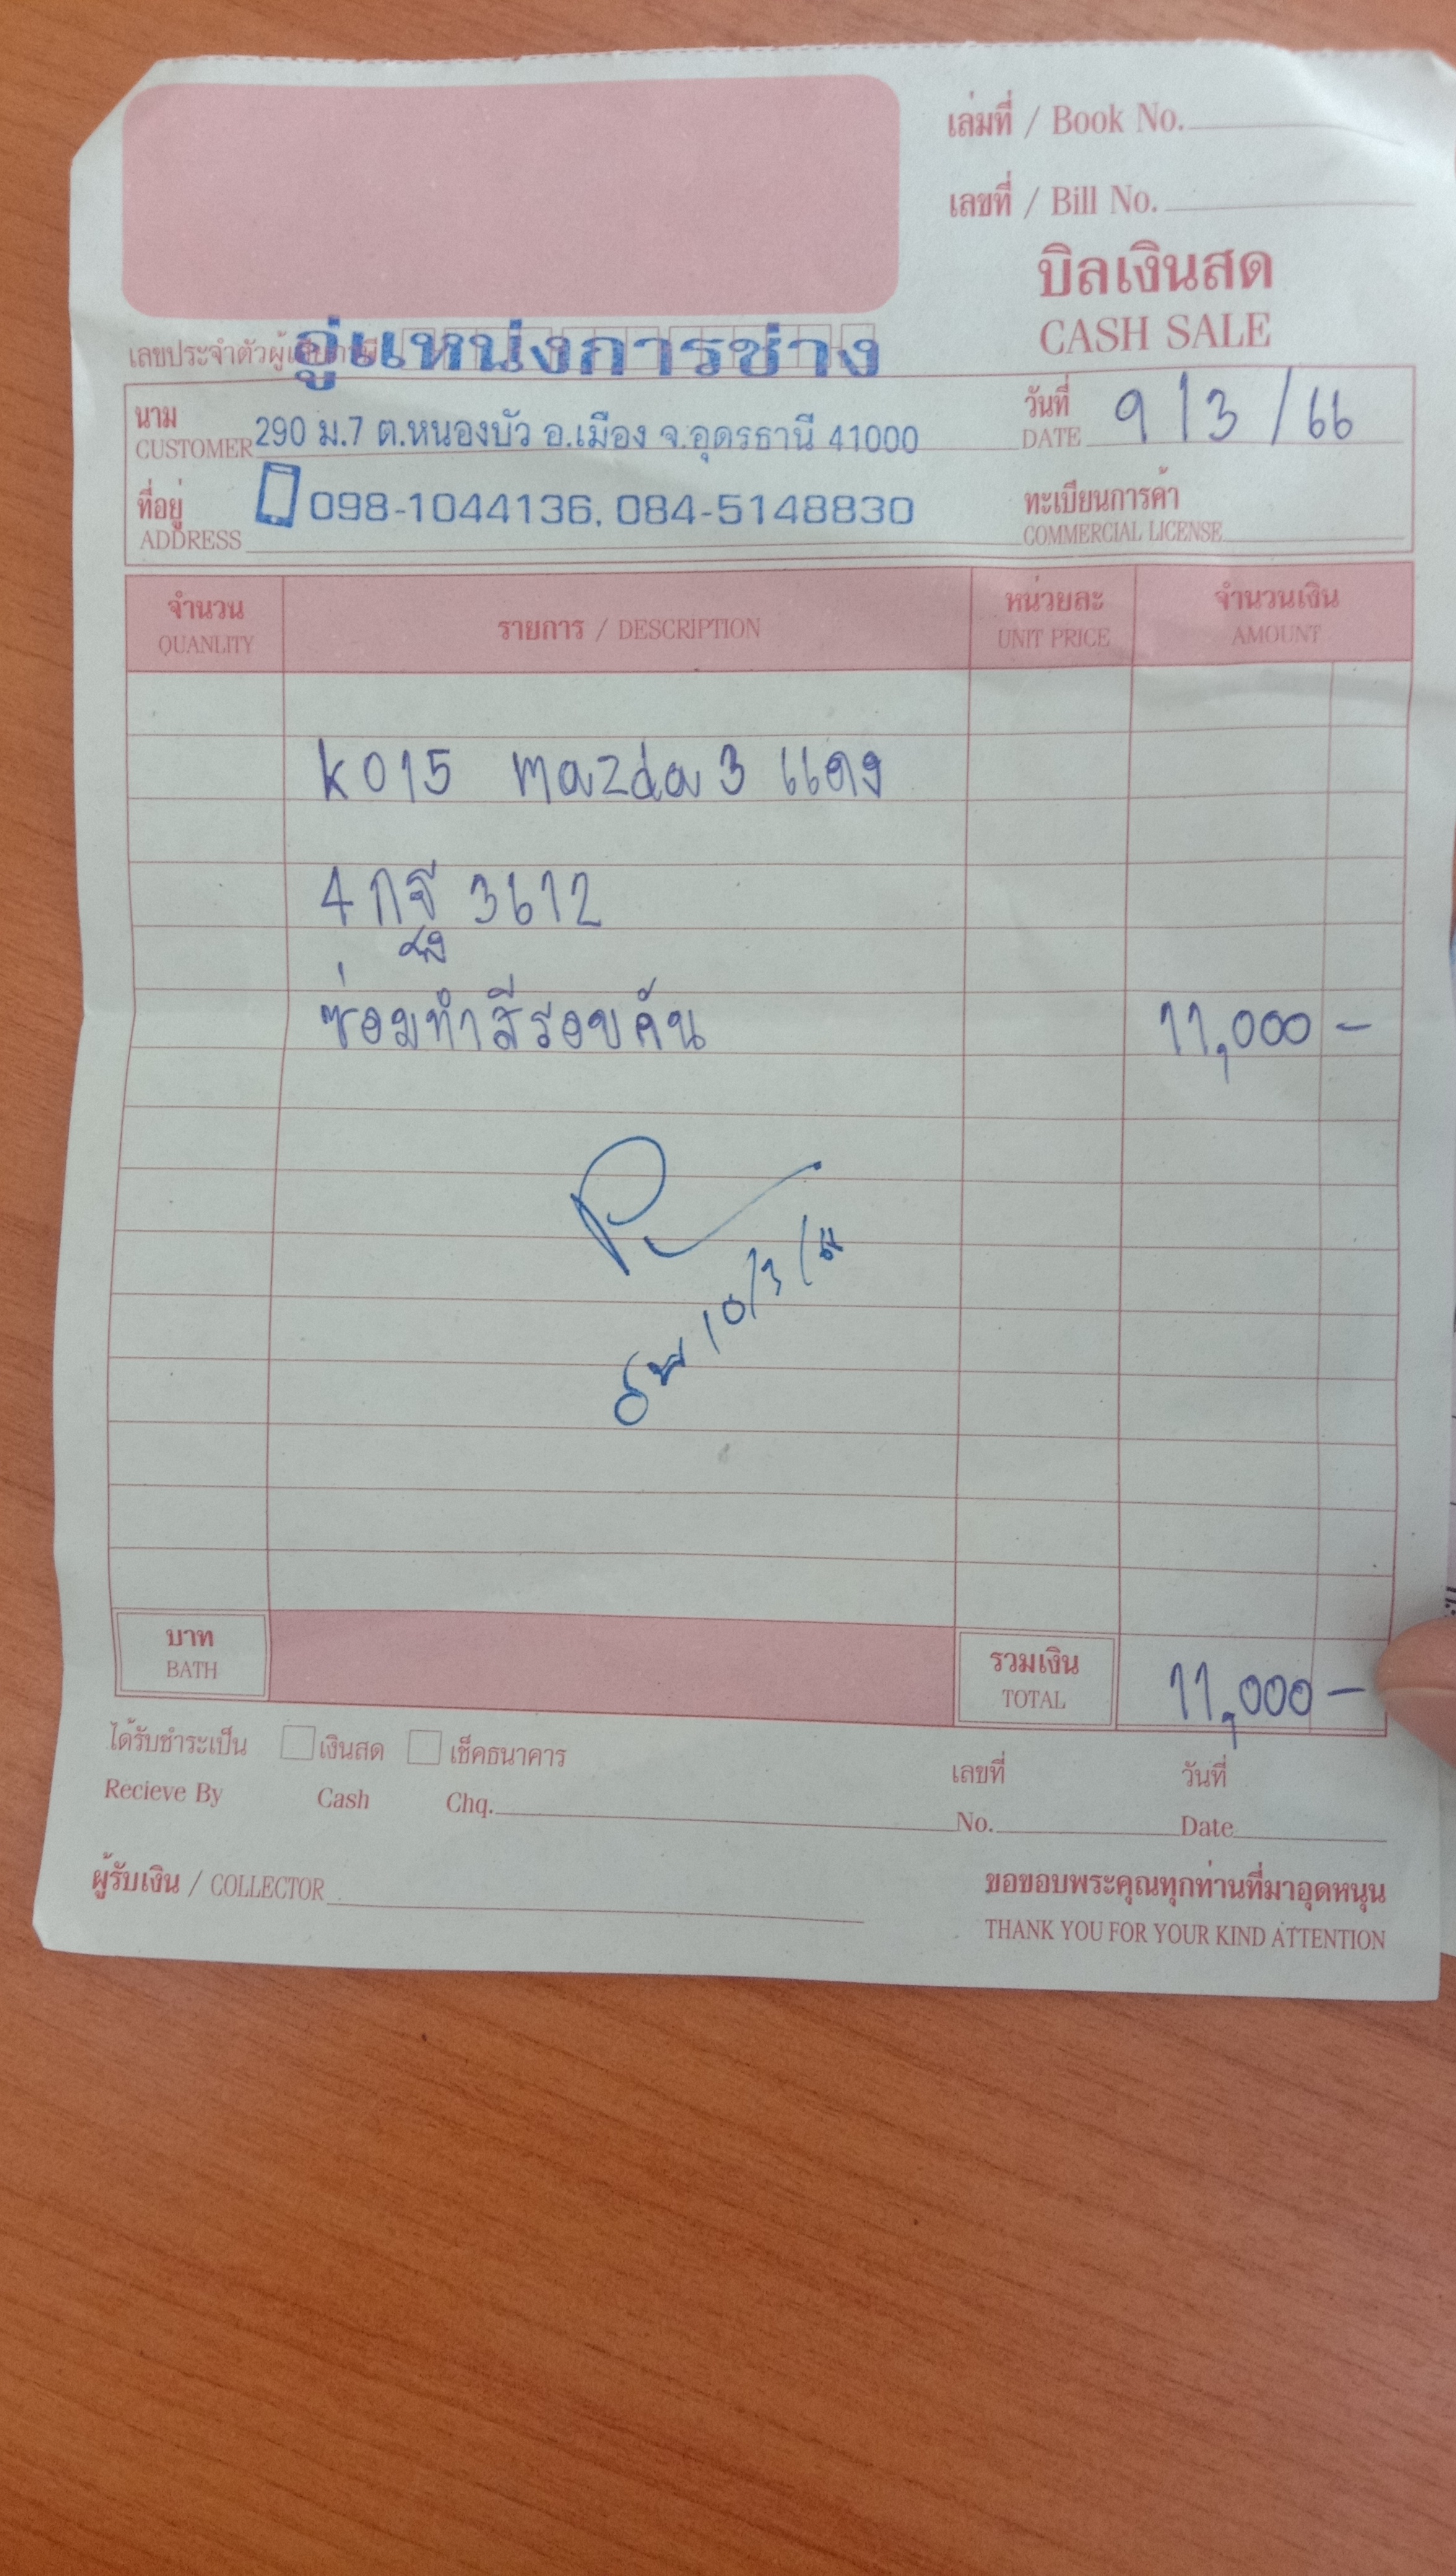 เล่มที่ / Book No.
เลขที่ / Bill No.
บิลเงินสด
CASH SALE
เลขประจำตัวผู้
อู่แหน่งการช่าง
นาม
CUSTOMER
290 ม.7 ต.หนองบัว อ.เมือง จ.อุดรธานี 41000
วันที่
DATE
9/3/66
ที่อยู่
ADDRESS
098-1044136, 084-5148830
ทะเบียนการค้า
COMMERCIAL LICENSE
จำนวน
QUANLITY
รายการ / DESCRIPTION
หน่วยละ
UNIT PRICE
จำนวนเงิน
AMOUNT
K015 mazda 3 แดง
4กฐ 3612
ซ่อมทำสีรอบคัน 11,000 -
10/3/66
บาท
BATH
รวมเงิน
TOTAL
11,000 -
ได้รับชำระเป็น เงินสด เช็คธนาคาร
เลขที่ วันที่
Recieve By Cash Chq. No. Date
ผู้รับเงิน / COLLECTOR
ขอขอบพระคุณทุกท่านที่มาอุดหนุน
THANK YOU FOR YOUR KIND ATTENTION